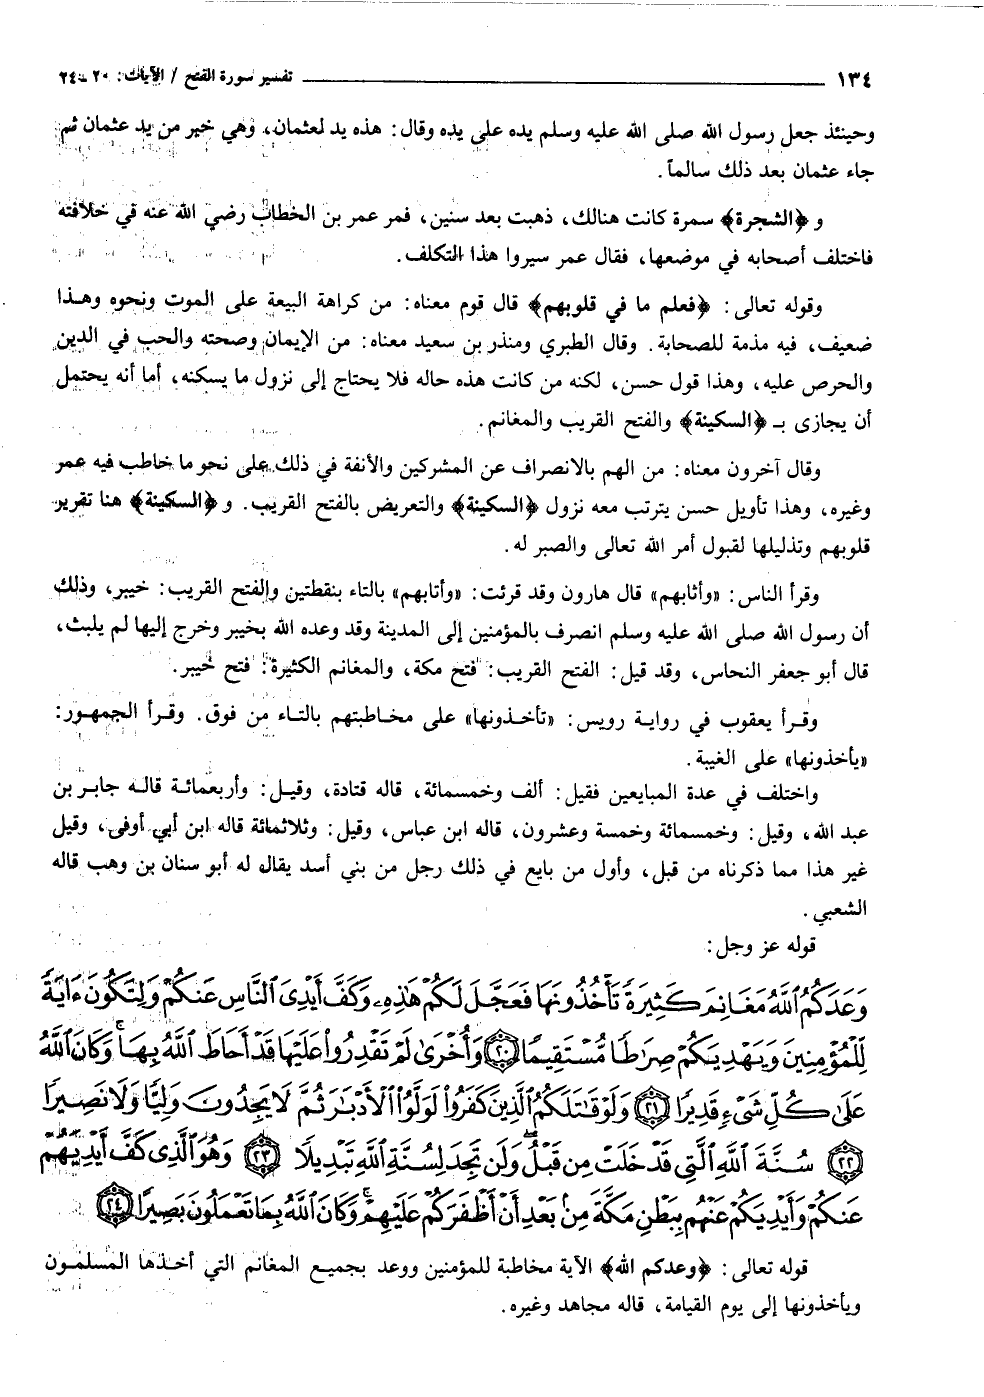 ١٣٤ تفسير سورة الفتح / الآيات: ٢٠ ـ ٢٤
وحينئذ جعل رسول الله صلى الله عليه وسلم يده على يده وقال: هذه يد لعثمان، وهي خير من يد عثمان ثم
جاء عثمان بعد ذلك سالماً.
و ﴿الشجرة﴾ سمرة كانت هنالك، ذهبت بعد سنين، فمر عمر بن الخطاب رضي الله عنه في خلافته
فاختلف أصحابه في موضعها، فقال عمر سيروا هذا التكلف.
وقوله تعالى: ﴿فعلم ما في قلوبهم﴾ قال قوم معناه: من كراهة البيعة على الموت ونحوه وهذا
ضعيف، فيه مذمة للصحابة. وقال الطبري ومنذر بن سعيد معناه: من الإيمان وصحته والحب في الدين
والحرص عليه، وهذا قول حسن، لكنه من كانت هذه حاله فلا يحتاج إلى نزول ما يسكنه، أما أنه يحتمل
أن يجازى بـ ﴿السكينة﴾ والفتح القريب والمغانم.
وقال آخرون معناه: من الهم بالانصراف عن المشركين والأنفة في ذلك على نحو ما خاطب فيه عمر
وغيره، وهذا تأويل حسن يترتب معه نزول ﴿السكينة﴾ والتعريض بالفتح القريب. و ﴿السكينة﴾ هنا تقرير
قلوبهم وتذليلها لقبول أمر الله تعالى والصبر له.
وقرأ الناس: «وأثابهم» قال هارون وقد قرئت: «وأتابهم» بالتاء بنقطتين والفتح القريب: خيبر، وذلك
أن رسول الله صلى الله عليه وسلم انصرف بالمؤمنين إلى المدينة وقد وعده الله بخيبر وخرج إليها لم يلبث،
قال أبو جعفر النحاس، وقد قيل: الفتح القريب: فتح مكة، والمغانم الكثيرة: فتح خيبر.
وقرأ يعقوب في رواية رويس: «تأخذونها» على مخاطبتهم بالتاء من فوق. وقرأ الجمهور:
«يأخذونها» على الغيبة.
واختلف في عدة المبايعين فقيل: ألف وخمسمائة، قاله قتادة، وقيل: وأربعمائة قاله جابر بن
عبد الله، وقيل: وخمسمائة وخمسة وعشرون، قاله ابن عباس، وقيل: وثلاثمائة قاله ابن أبي أوفى، وقيل
غير هذا مما ذكرناه من قبل، وأول من بايع في ذلك رجل من بني أسد يقال له أبو سنان بن وهب قاله
الشعبي.
قوله عز وجل:
وَعَدَكُمُ ٱللَّهُ مَغَانِمَ كَثِيرَةً تَأْخُذُونَهَا فَعَجَّلَ لَكُمْ هَٰذِهِۦ وَكَفَّ أَيْدِىَ ٱلنَّاسِ عَنكُمْ وَلِتَكُونَ ءَايَةً
لِّلْمُؤْمِنِينَ وَيَهْدِيَكُمْ صِرَٰطًا مُّسْتَقِيمًا ﴿٢٠﴾ وَأُخْرَىٰ لَمْ تَقْدِرُوا۟ عَلَيْهَا قَدْ أَحَاطَ ٱللَّهُ بِهَا ۚ وَكَانَ ٱللَّهُ
عَلَىٰ كُلِّ شَىْءٍ قَدِيرًا ﴿٢١﴾ وَلَوْ قَٰتَلَكُمُ ٱلَّذِينَ كَفَرُوا۟ لَوَلَّوُا۟ ٱلْأَدْبَٰرَ ثُمَّ لَا يَجِدُونَ وَلِيًّا وَلَا نَصِيرًا
﴿٢٢﴾ سُنَّةَ ٱللَّهِ ٱلَّتِى قَدْ خَلَتْ مِن قَبْلُ ۖ وَلَن تَجِدَ لِسُنَّةِ ٱللَّهِ تَبْدِيلًا ﴿٢٣﴾ وَهُوَ ٱلَّذِى كَفَّ أَيْدِيَهُمْ
عَنكُمْ وَأَيْدِيَكُمْ عَنْهُم بِبَطْنِ مَكَّةَ مِنۢ بَعْدِ أَنْ أَظْفَرَكُمْ عَلَيْهِمْ ۚ وَكَانَ ٱللَّهُ بِمَا تَعْمَلُونَ بَصِيرًا ﴿٢٤﴾
قوله تعالى: ﴿وعدكم الله﴾ الآية مخاطبة للمؤمنين ووعد بجميع المغانم التي أخذها المسلمون
ويأخذونها إلى يوم القيامة، قاله مجاهد وغيره.